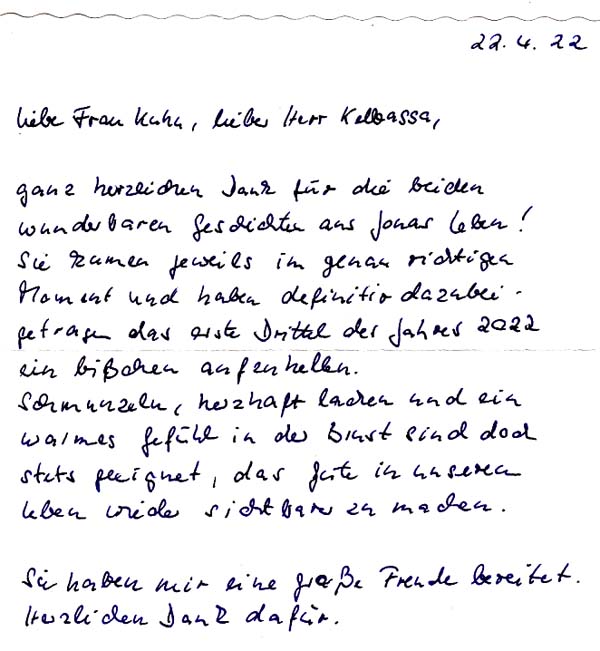 22.4.22
Liebe Frau Kuhn, lieber Herr Kelbassa,
ganz herzlichen Dank für die beiden
wunderbaren Geschichten aus Jonas Leben!
Sie kamen jeweils im genau richtigen
Moment und haben definitiv dazu bei-
getragen das erste Drittel des Jahres 2022
ein bißchen aufzuhellen.
Schmunzeln, herzhaft lachen und ein
warmes Gefühl in der Brust sind doch
stets geeignet, das Gute in unserem
Leben wieder sichtbarer zu machen.
Sie haben mir eine große Freude bereitet.
Herzlichen Dank dafür.